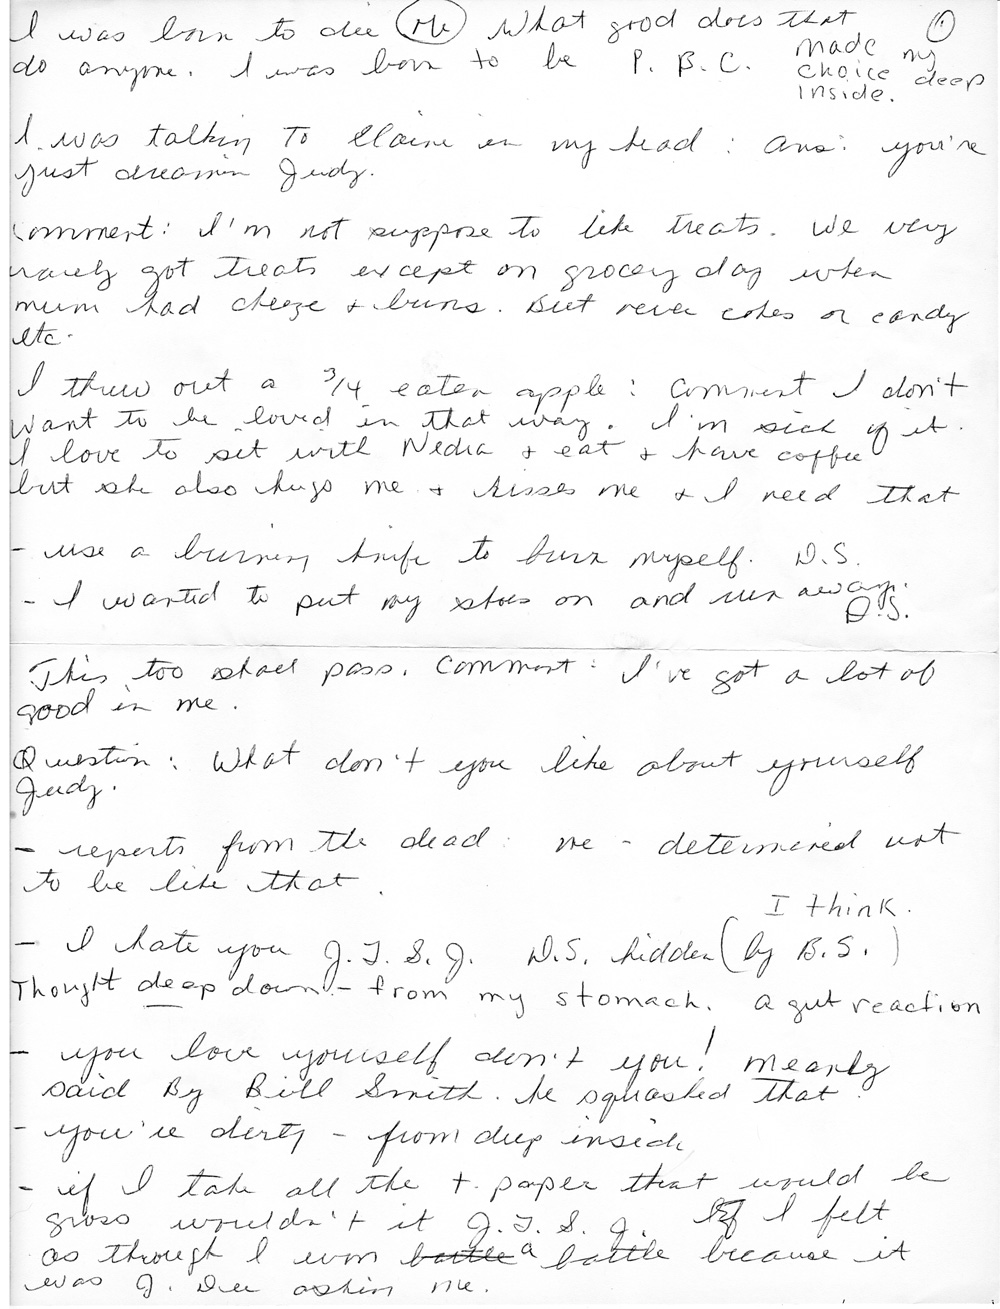 I was born to die (Me) What good does that ①
do anyone. I was born to be P. B. C. made my
choice deep
inside.
I was talking To Elaine in my head : Ans: you're
just dreamin Judy.
Comment: I'm not suppose to like treats. We very
rarely got treats except on grocery day when
mum had cheeze + buns. But never cokes or candy
etc.
I threw out a 3/4 eaten apple : Comment I don't
want to be loved in that way. I'm sick of it.
I love to sit with Nedra + eat + have coffee
but she also hugs me + kisses me + I need that
- use a burning knife to burn myself. D.S.
- I wanted to put my shoes on and run away.
D.S.
This too shall pass. Comment : I've got a lot of
good in me.
Question : What don't you like about yourself
Judy.
- reports from the dead : me - determined not
to be like that.
I think.
- I hate you J.T.S.J. D.S. hidden (by B.S.)
Thought deep down - from my stomach. a gut reaction
- you love yourself don't you! meanly
said By Bill Smith. he squashed that.
- you're dirty - from deep inside
- if I take all the t. paper that would be
gross wouldn't it J.T.S.J. If I felt
as though I won battle a battle because it
was J. Dee askin me.